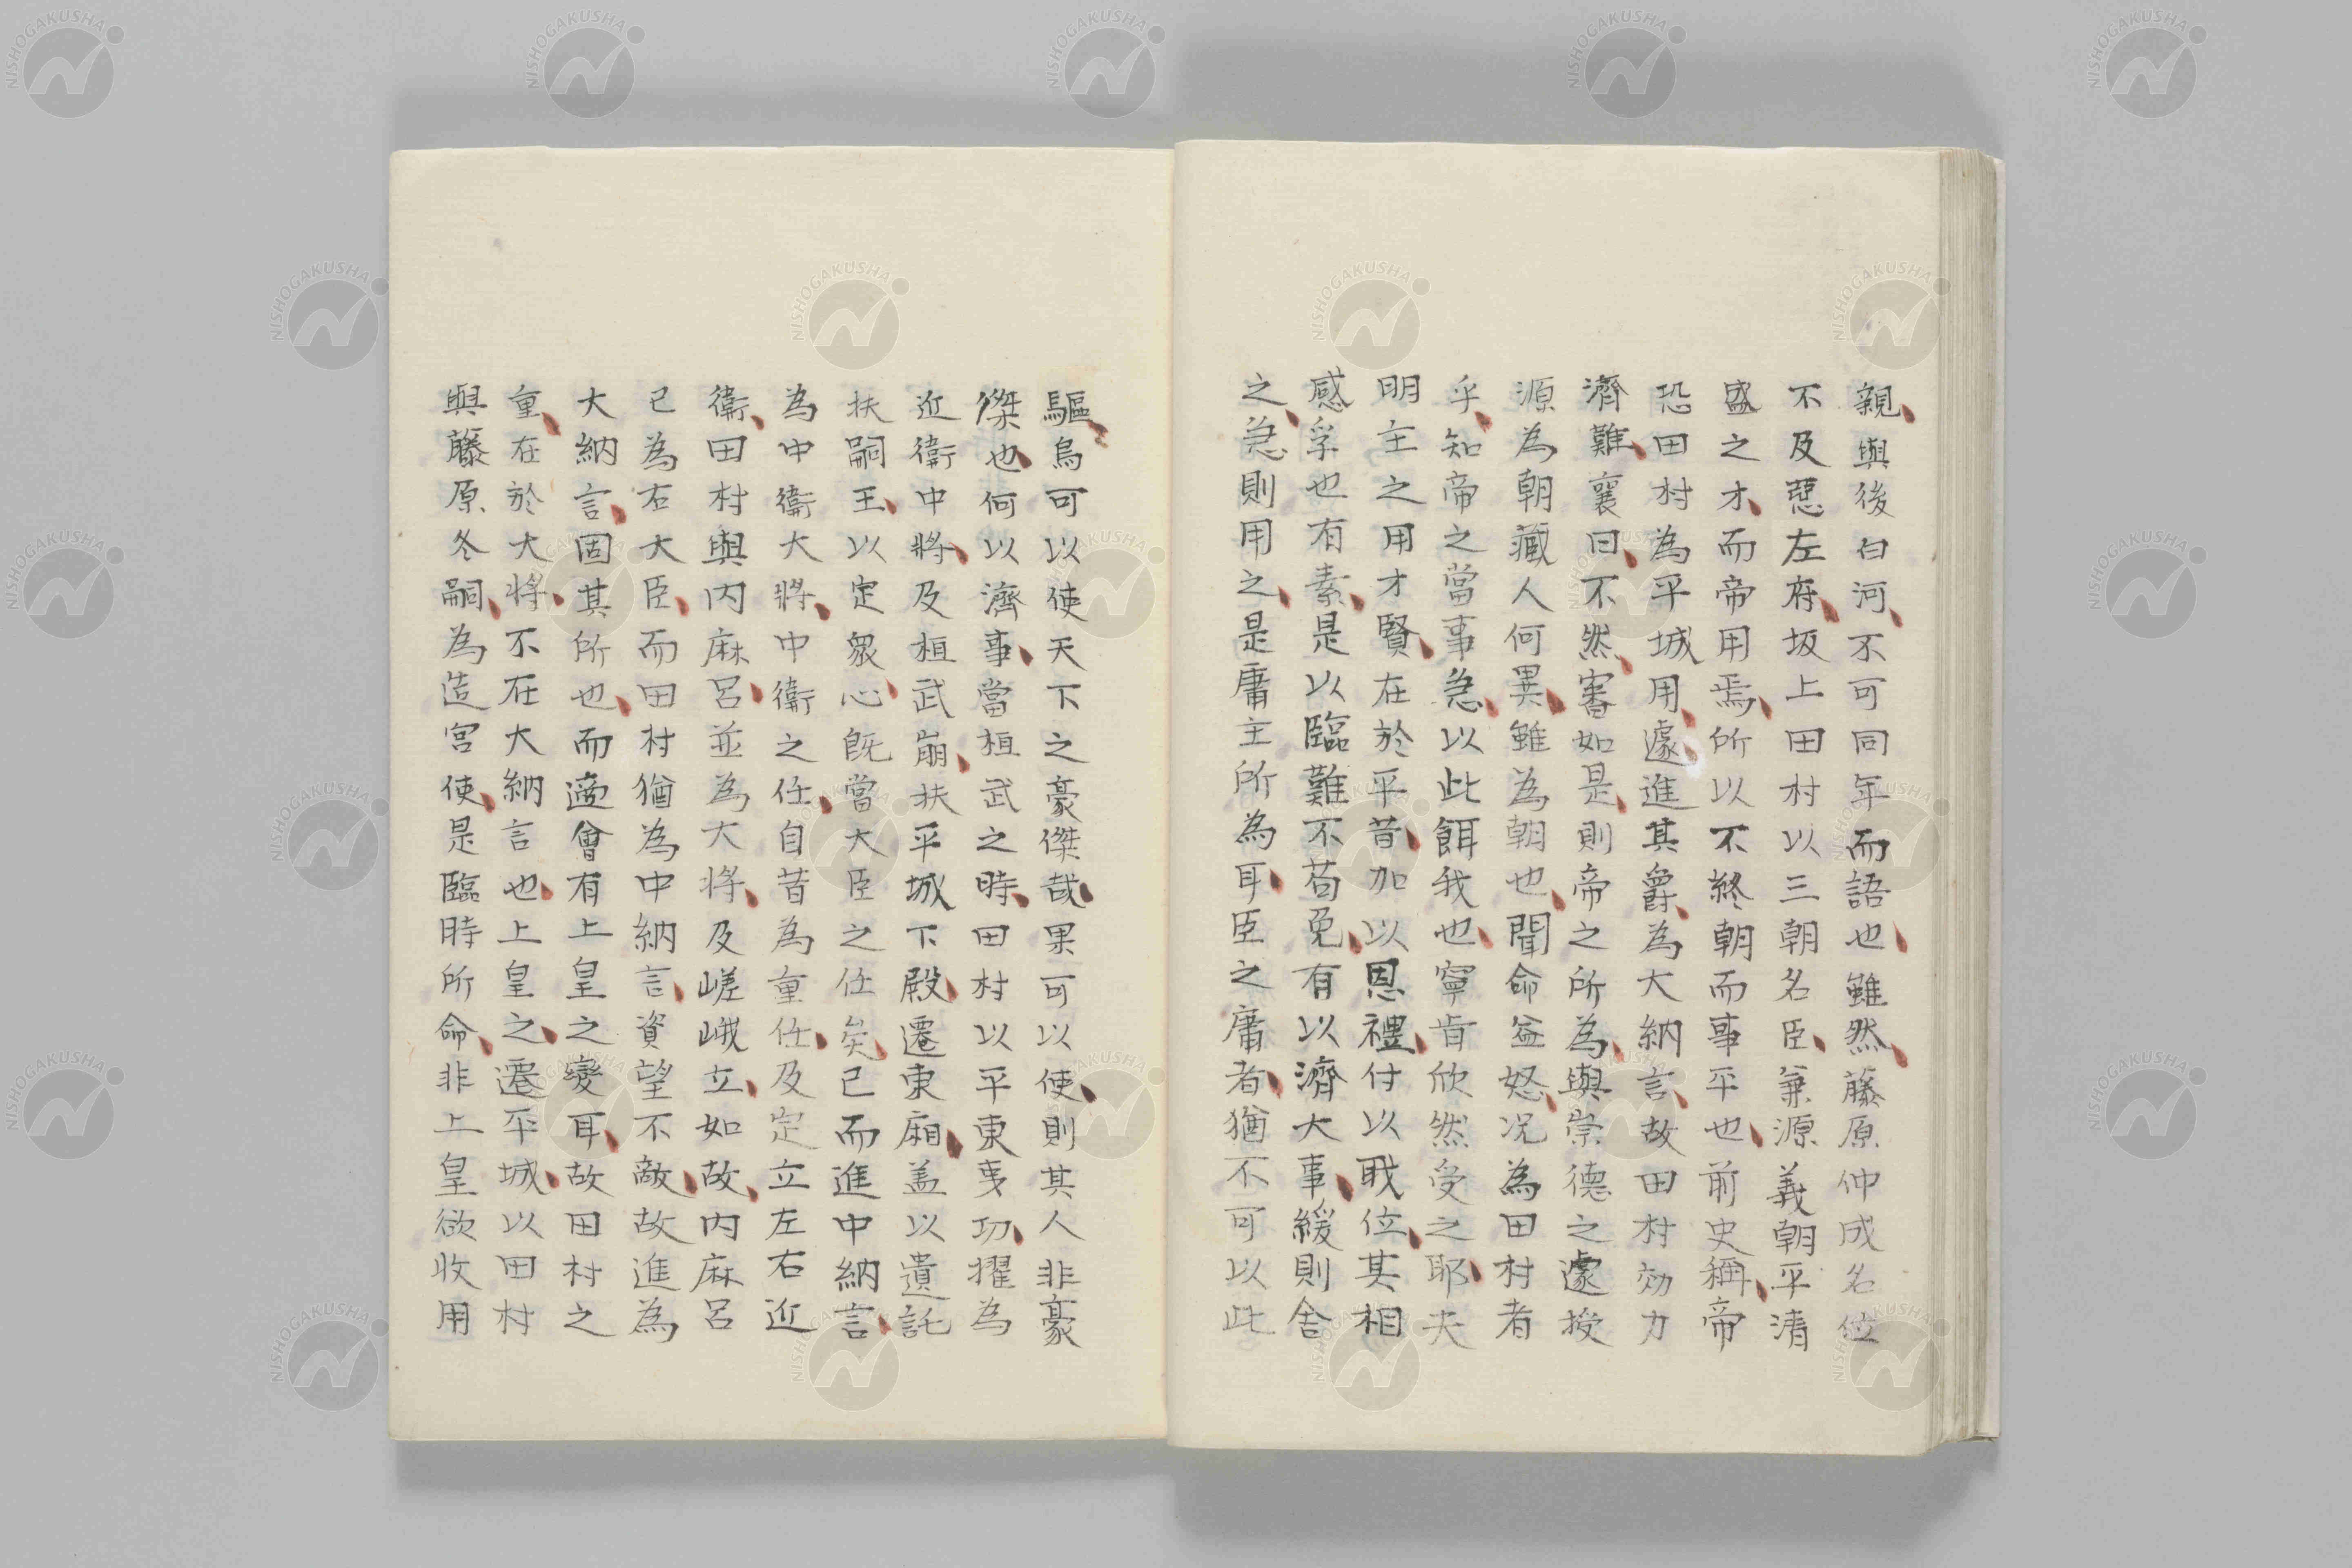 親與後白河不可同年而語也雖然藤原仲成名位
不及惡左府坂上田村以三朝名臣兼源義朝平清
盛之才而帝用焉所以不終朝而事平也前史稱帝
恐田村為平城用遽進其爵為大納言故田村効力
濟難襄曰不然審如是則帝之所為與崇德之遽授
源為朝藏人何異雖為朝也聞命益怒况為田村者
乎知帝之當事急以此餌我也寧肯欣然受之耶夫
明主之用才賢在於平昔加以恩禮付以戢位其相
感孚也有素是以臨難不苟免有以濟大事緩則舍
之急則用之是庸主所為耳臣之庸者猶不可以此
驅烏可以使天下之豪傑哉果可以使則其人非豪
傑也何以濟事當桓武之時田村以平東夷功擢為
近衛中將及桓武崩扶平城下殿遷東廂盖以遺託
扶嗣王以定眾心既當大臣之任矣已而進中納言
為中衛大將中衛之任自昔為重任及定立左右近
衛田村與内麻呂並為大將及嵯峨立如故内麻呂
已為右大臣而田村猶為中納言資望不敵故進為
大納言固其所也而適會有上皇之變耳故田村之
重在於大將不在大納言也上皇之遷平城以田村
與藤原冬嗣為造宮使是臨時所命非上皇欲收用